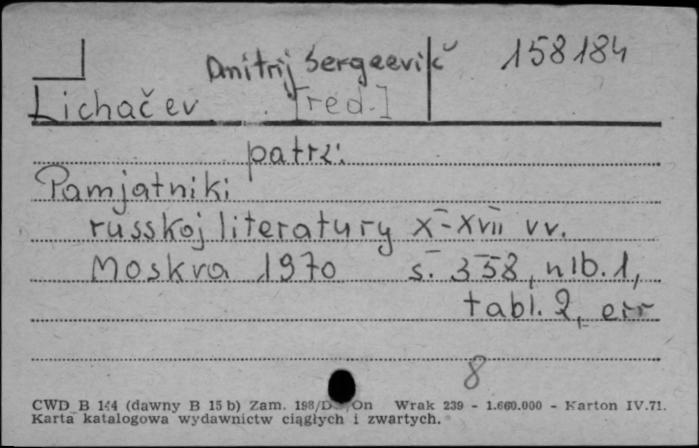 Dmitrij Sergeevič 158184
Lichačev [red.]
patrz:
Pamjatniki
russkoj literatury X-XVII vv.
Moskva 1970 s. 358, nlb. 1,
tabl. 2, err
8
CWD B 144 (dawny B 15 b) Zam. Wrak 239 - 1.660.000 - Karton IV.71.
Karta katalogowa wydawnictw ciągłych i zwartych.